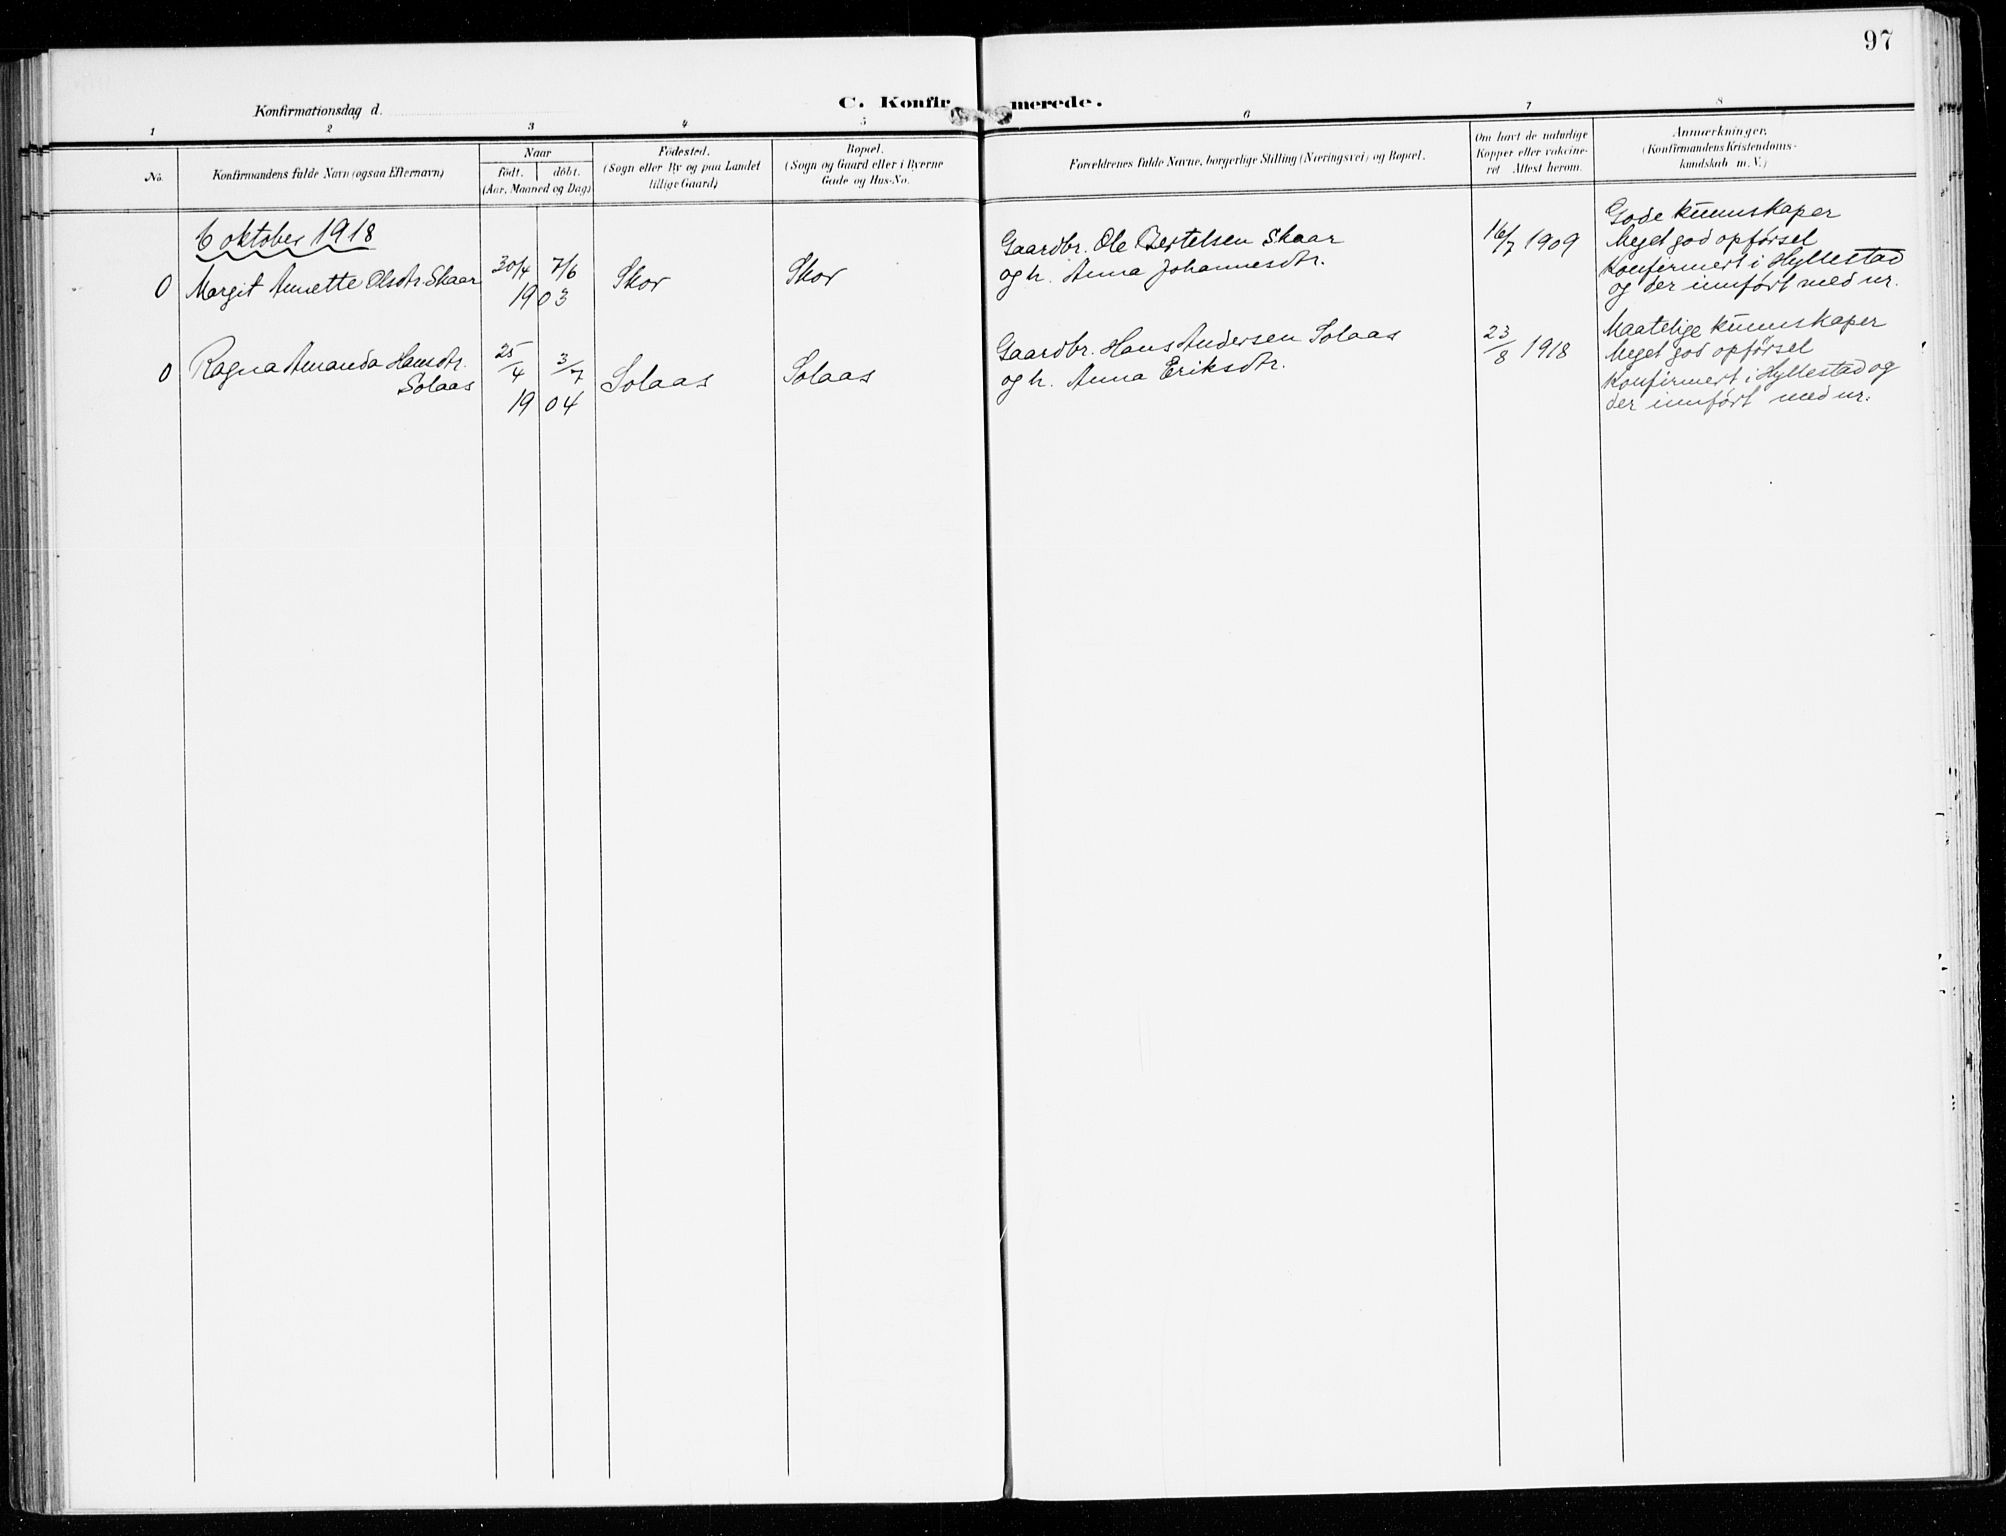 97
C. Konfirmerede.
Konfirmationsdag d.
1 2 3 4 5 6 7 8
No.
Konfirmandens fulde Navn (ogsaa Efternavn)
Naar
født. døbt.
(Aar, Maaned og Dag)
Fødested.
(Sogn eller By og paa Landet
tillige Gaard)
Bopæl.
(Sogn og Gaard eller i Byerne
Gade og Hus-No.
Forældrenes fulde Navne, borgerlige Stilling (Næringsvei) og Bopæl.
Om havt de naturlige
Kopper eller vakcine-
ret Attest herom.
Anmærkninger.
(Konfirmandens Kristendoms-
kundskab m. V.)
6 oktober 1918
0 Margit Annette Olsdtr. Skaar
30/4 7/6
1903
Skor
Skor
Gaardbr. Ole Bertelsen Skaar
og h. Anna Johannesdtr.
16/7 1909
Gode kunnskaper
Meget god opførsel
Konfirmert i Hyllestad
og der innført med nr.
0 Ragna Amanda Hansdtr.
Solaas
25/4 3/7
1904
Solaas
Solaas
Gaardbr. Hans Andersen Solaas
og h. Anna Eriksdtr.
23/8 1918
Maatelige kunnskaper
Meget god opførsel
Konfirmert i Hyllestad og
der innført med nr.